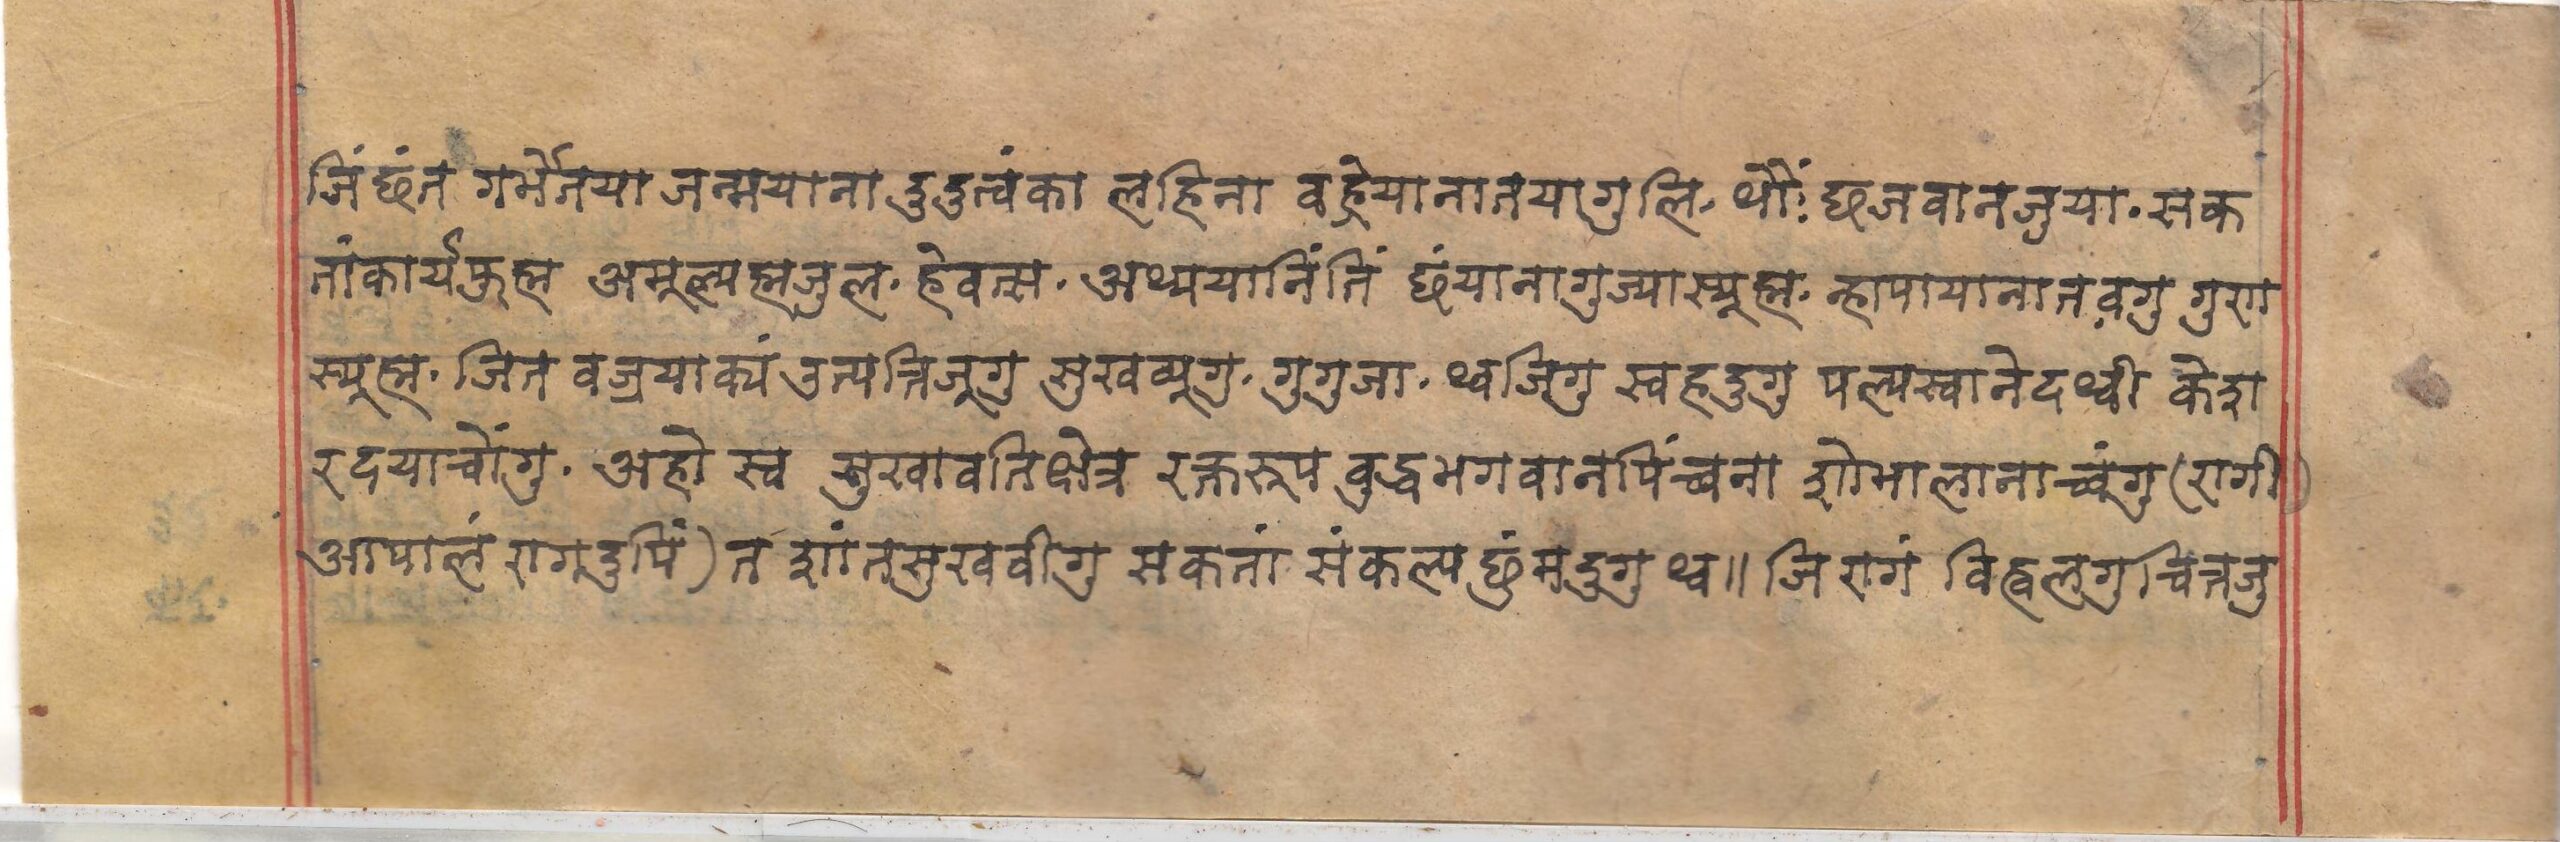 जिं छंत गर्भेतया जन्मयाना दुदुत्वंका लहिना वह्रेयानातयागुलि, थौं: छ जवानजुया. सक
तांकार्यफुह्म अमूल्यह्मजुल. हेवत्स. अथ्ययानिंतिं छंयानागुज्यास्यूह्म. न्हापायानातवगु गुण
स्यूह्म. जित वज्रयाक्यं उत्पत्तिजूगु सुखब्यूगु. गुगुजा. थ्वजिगु स्वहदुगु पल्यस्वानेदथ्वी केशा
रदयाचोंगु. अहो स्व सुखावतिक्षेत्र रक्तरूप बुद्धभगवानपिंच्वना शोभालानाच्वंगु (रागी
आपालं रागदुपिं) त शांतसुखबीगु सकतां संकल्प छुंमदुगु थ्व॥ जि रागं विह्वलगु चित्तजु